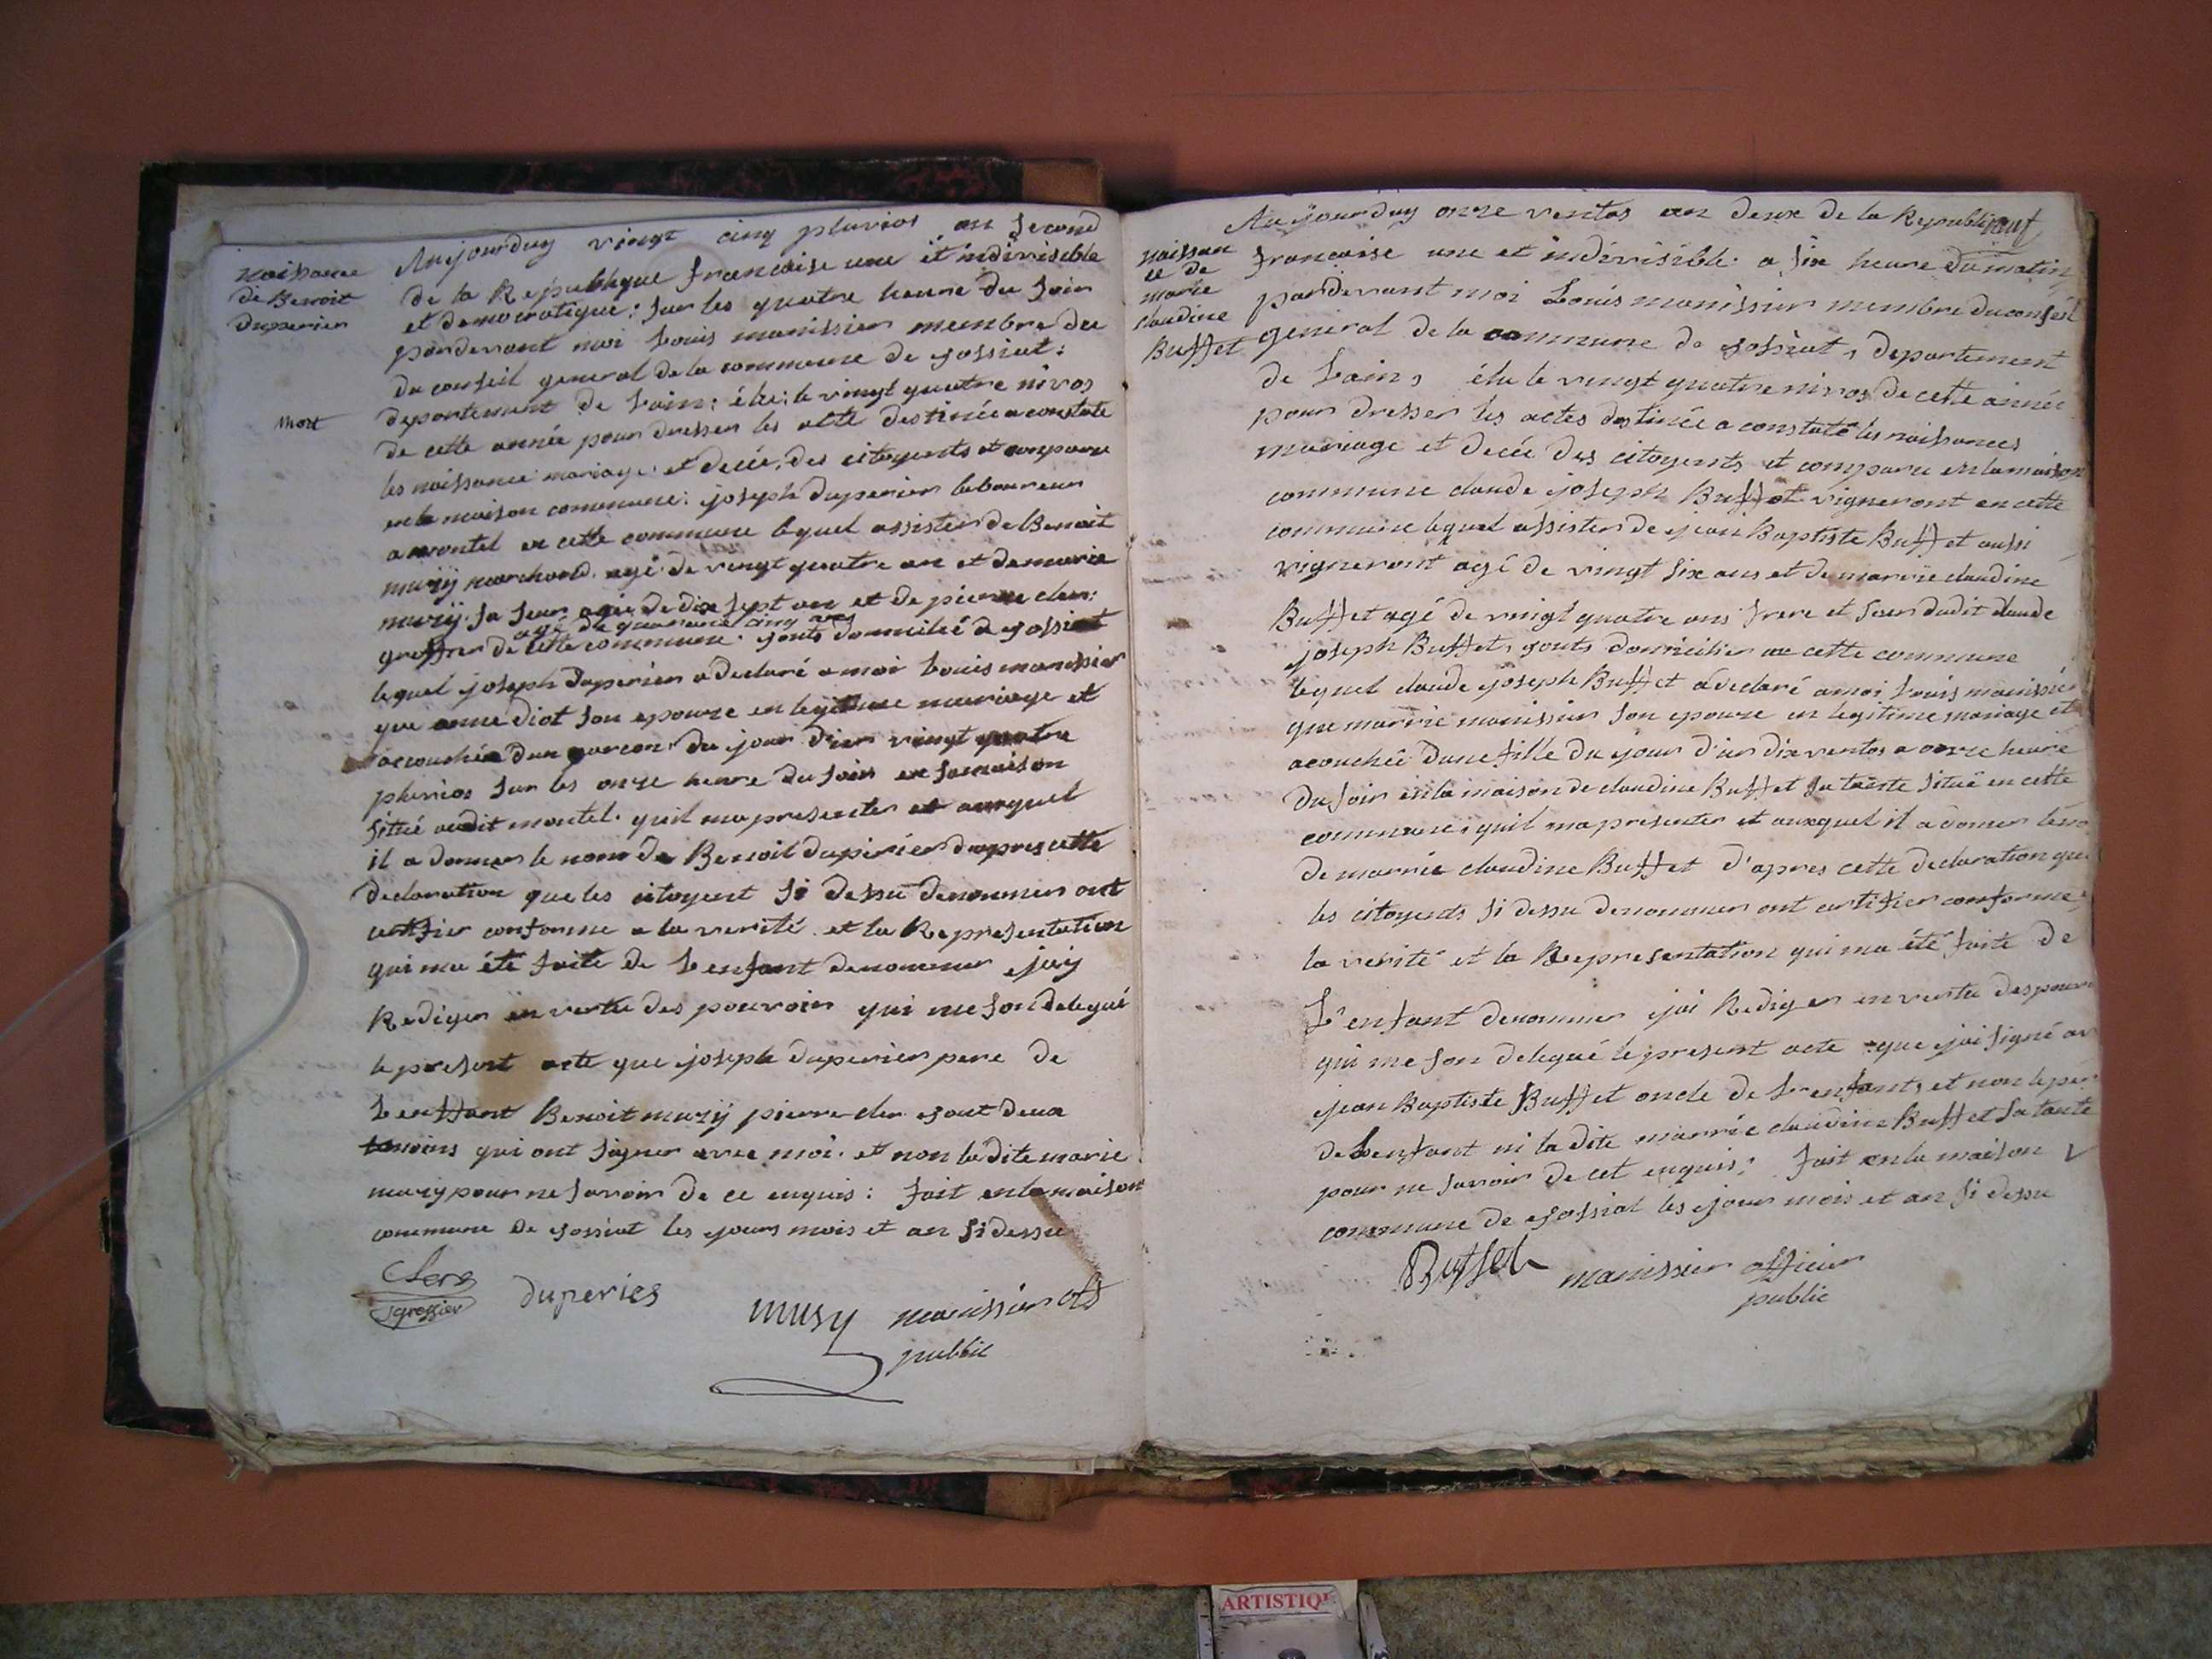 naissance
de Benoit
duperier
mort
Aujourduy vingt cinq pluvios an second
de la Republique francaise une et indivisible
et democratique : sur les quatre heure du soir
pardevant moi Louis manissier membre du
du conseil general de la commune de jossiat :
departement de Lain : élu : le vingt quatre nivos
de cette année pour dresser les acte destinée a constate
les naissance mariage et decée, des citoyents et comparu
en la maison commune : joseph duperier laboureur
a montel en cette commune lequel assister de Benoit
muzÿ marchand agé de vingt quatre an et de marie
muzÿ sa seur agée de dix sept an et de pierre cler :
agé de quarante cinq ans
greffier de cette commune. jouts domicilié de jossiat
lequel joseph duperier a declaré a moi Louis manissier
que anne diot son epouze en legitime mariage et
accouchée dun garcon du jour d'ier vingt quatre
pluvios sur les onze heure du soir en sa maison
situé audit montel. quil ma presenter et auxquel
il a donner le nom de Benoit duperier dapres cette
declaration que les citoyent si dessu denommer ont
certifier conforme a la verité et la Representation
qui ma été faite de Lenfant denommer jaiy
Rediger en vertu des pouvoir qui me son delegué
le present acte que joseph duperier pere de
Lenffant Benoit muzÿ pierre cler jout deux
temoins qui ont signer avec moi. et non la dite marie
muzÿ pour ne savoir de ce enquis : fait en la maison
commune de jossiat les jours mois et an si dessu
Clerc
greffier
duperies
musy
manissier off
public
naissan
ce de
marie
claudine
Buffet
Aujourduy onze ventos an deux de la Republique
francaise une et indivisible. a six heure du matin
pardevant moi Louis manissier membre du conseil
general de la commune de jossiat, departement
de Lain, élu le vingt quatre nivos de cette année
pour dresser les actes destinée a constaté les naissances
mariage et decée des citoyents et comparu en la maison
commune claude joseph Buffet vigneront en cette
commune lequel assister de jean Baptiste Buffet aussi
vigneront agé de vingt six ans et de marrie claudine
Buffet agé de vingt quatre ans frere et seur dudit claude
joseph Buffet, jouts domicilier en cette commune
lequel claude joseph Buffet a declaré a moi Louis manissier
que marrie manissier son epouze en legitime mariage et
acouchée dune fille du jour d'ier dix ventos a onze heure
du soir en la maison de claudine Buffet sa tante situé en cette
commune, quil ma presenter et auxquel il a donner le no
de marrie claudine Buffet d'apres cette declaration que
les citoyents si dessu denommer ont certifier conforme a
la verité et la Representation qui ma été faite de
L'enfant denommer jai Rediger en vertu des pouvoi
qui me son delegué le present acte que jai signé av
jean Baptiste Buffet oncle de Lenfant, et non le per
de Lenfant ni la dite marrie claudine Buffet sa tante
pour ne savoir de cet enquis : fait en la maison
commune de jossiat les jour mois et an si dessu
Buffet
manissier officier
public
ARTISTIQ